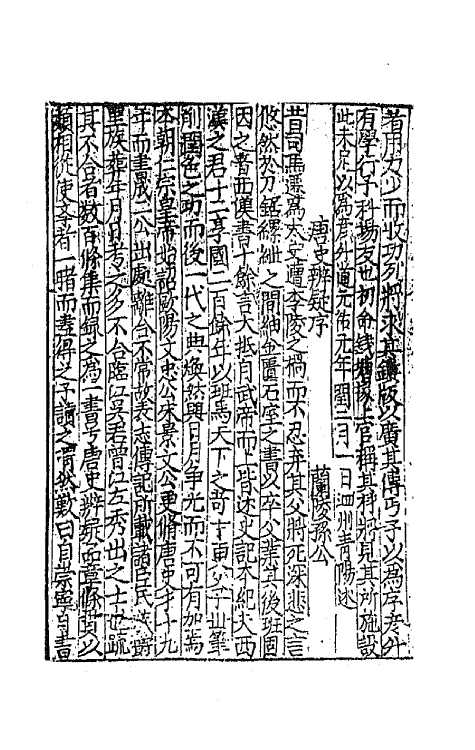 者用力少而收功列將求其鏤版以廣其傳丐予以為序彦升
有學行予科場友也初命錢塘掾士官稱其科將見其所施設
此未足以為彦升道元佑元年閏二月一日泗州青陽述
唐史辨疑序 蘭陵孫公
昔司馬遷為太史遭李陵之禍而不忍弃其父將死深悲之言
悠然於刀鋸縲紲之間紬金匱石室之書以卒父業其後班固
因之著西漢書十餘言大抵自武帝而上皆述史記本紀夫西
漢之君十二享國二百餘年以班馬天下之奇才更父子世筆
削潤色之功而後一代之典煥然與日月爭光而不可有加焉
本朝仁宗皇帝始詔歐陽文忠公宋景文公更脩唐史十十九
年而書成二公出處離合不常故表志傳記所載諸臣民 爵
里族葬年月日考之多不合臨江吳君曾江左秀出之士也疏
其不合者數百條集而録之為一書号唐史辨疑而章條 以
類相從使 者一睹而盡得之予讀之喟然歎曰自崇寧 書